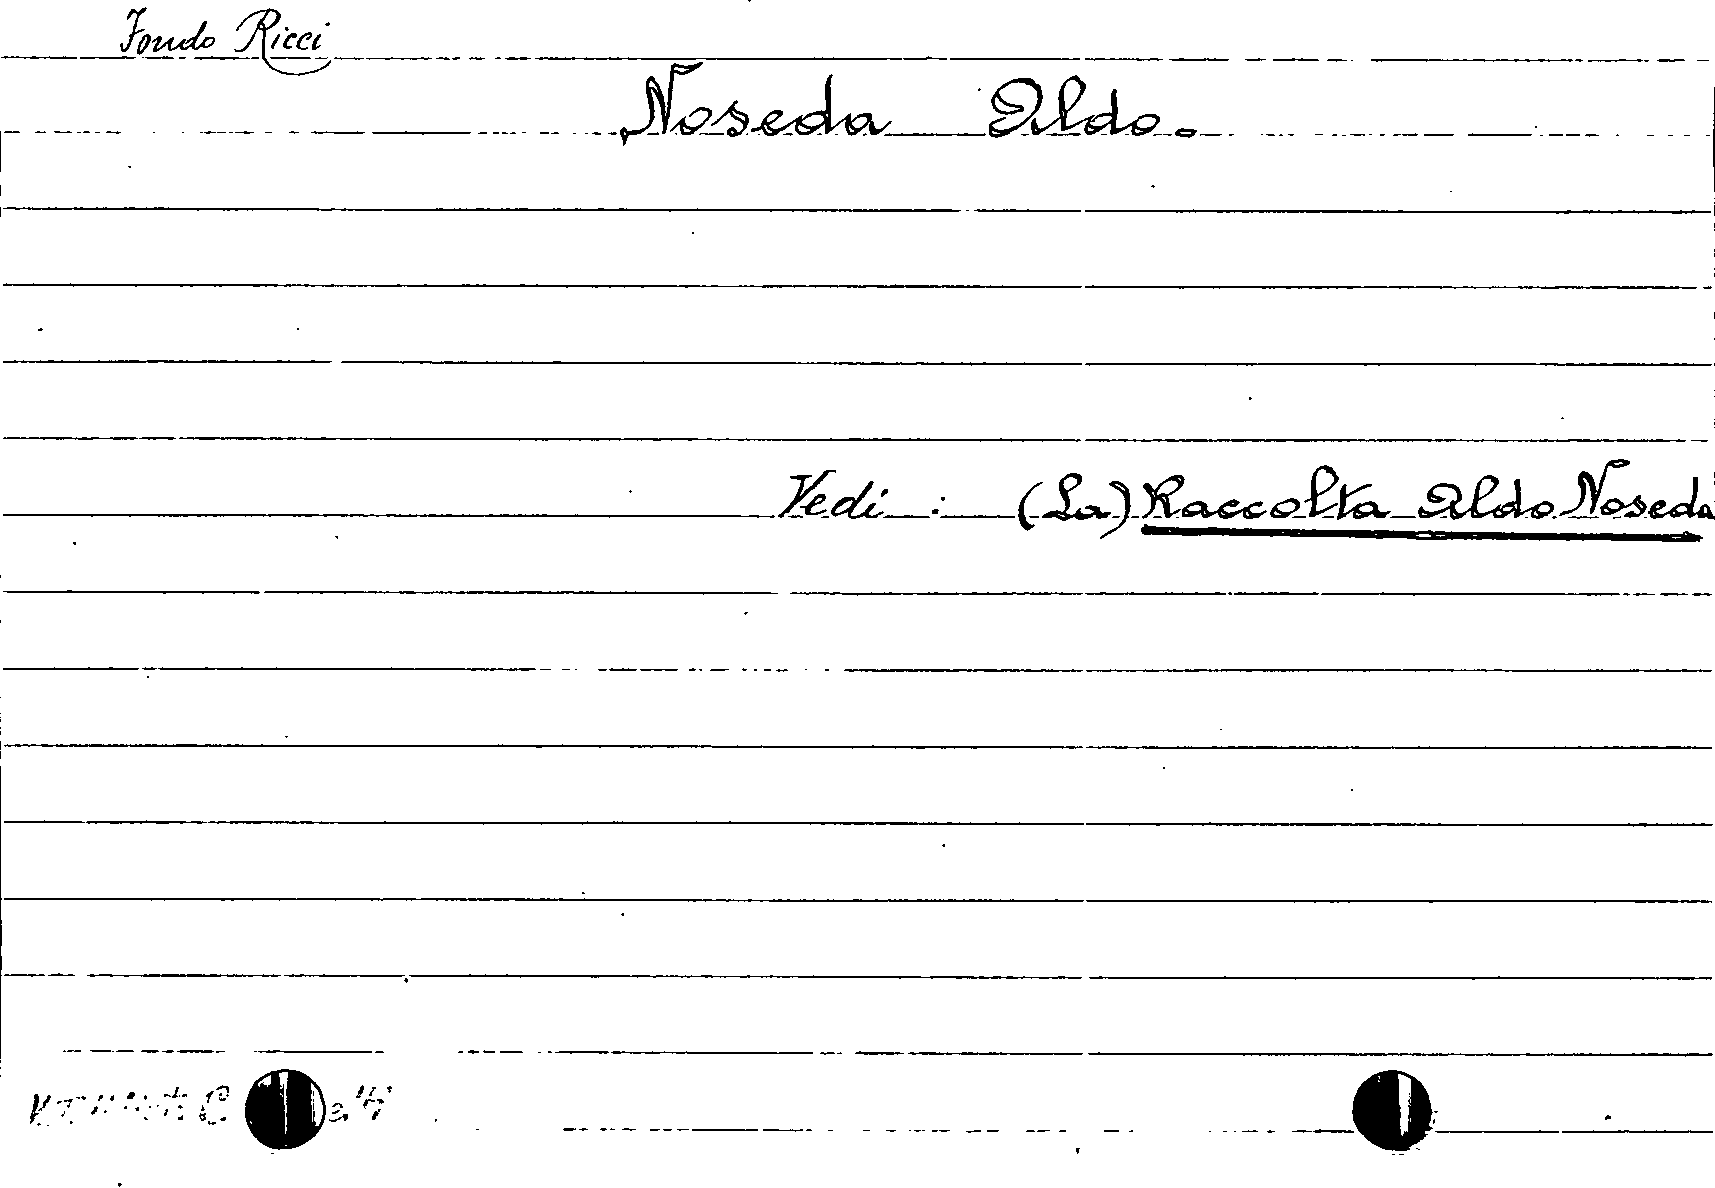 Fondo Ricci
Noseda Aldo.
Vedi : (La) Raccolta Aldo Noseda